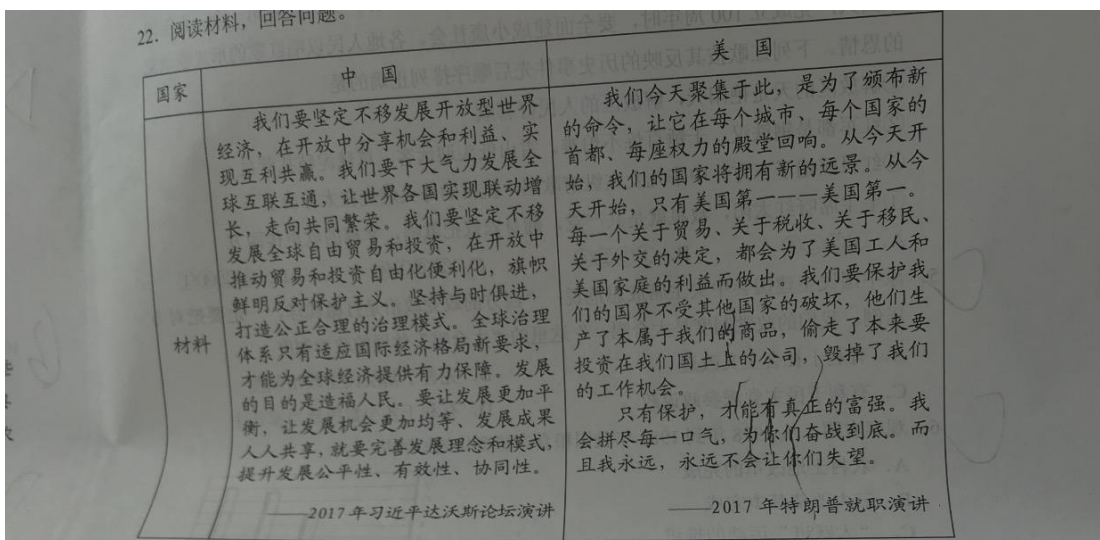 22. 阅读材料，回答问题。
国家
中 国
美 国
材料
我们要坚定不移发展开放型世界
经济，在开放中分享机会和利益、实
现互利共赢。我们要下大气力发展全
球互联互通，让世界各国实现联动增
长，走向共同繁荣。我们要坚定不移
发展全球自由贸易和投资，在开放中
推动贸易和投资自由化便利化，旗帜
鲜明反对保护主义。坚持与时俱进，
打造公正合理的治理模式。全球治理
体系只有适应国际经济格局新要求，
才能为全球经济提供有力保障。发展
的目的是造福人民。要让发展更加平
衡，让发展机会更加均等、发展成果
人人共享，就要完善发展理念和模式，
提升发展公平性、有效性、协同性。
——2017年习近平达沃斯论坛演讲
我们今天聚集于此，是为了颁布新
的命令，让它在每个城市、每个国家的
首都、每座权力的殿堂回响。从今天开
始，我们的国家将拥有新的远景。从今
天开始，只有美国第一——美国第一。
每一个关于贸易、关于税收、关于移民、
关于外交的决定，都会为了美国工人和
美国家庭的利益而做出。我们要保护我
们的国界不受其他国家的破坏，他们生
产了本属于我们的商品，偷走了本来要
投资在我们国土上的公司，毁掉了我们
的工作机会。
只有保护，才能有真正的富强。我
会拼尽每一口气，为你们奋战到底。而
且我永远，永远不会让你们失望。
——2017年特朗普就职演讲